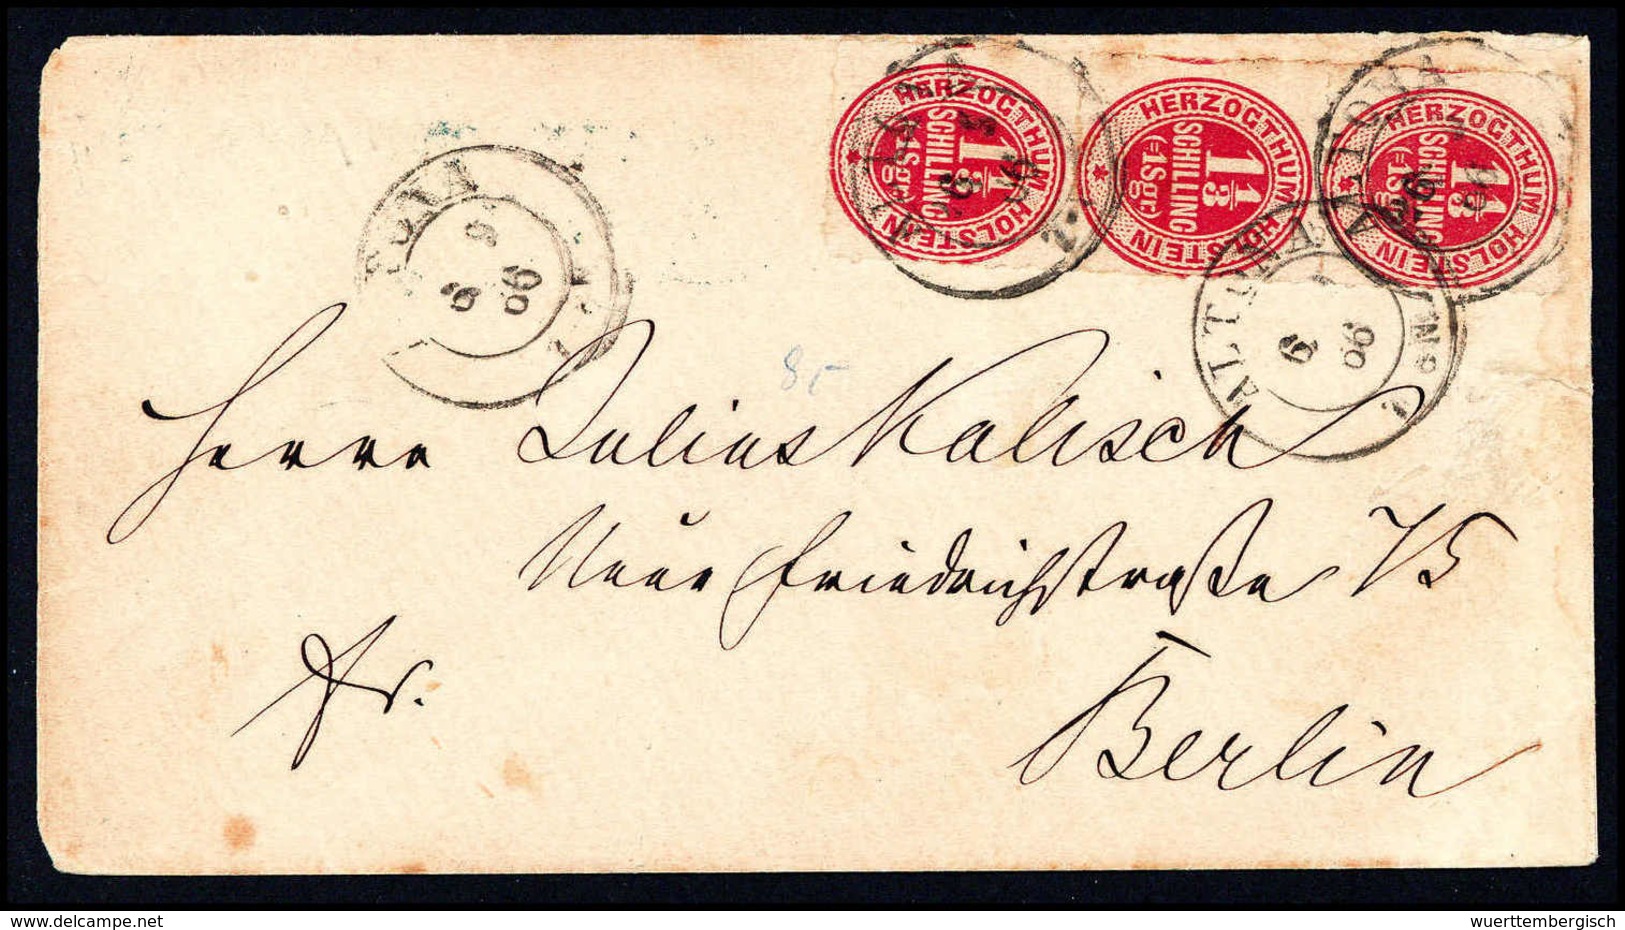 HERZOGTHUM HOLSTEIN
1 1/3
SCHILLING
(=1Sgr.)
HERZOGTHUM HOLSTEIN
1 1/3
SCHILLING
(=1Sgr.)
HERZOGTHUM HOLSTEIN
1 1/3
SCHILLING
(=1Sgr.)
ALTONA
ALTONA
ALTONA No
9
66
Herrn Julius Kalisch
Neue Friedrichstraße 75
Fr.
Berlin
www.delcampe.net
wuerttembergisch